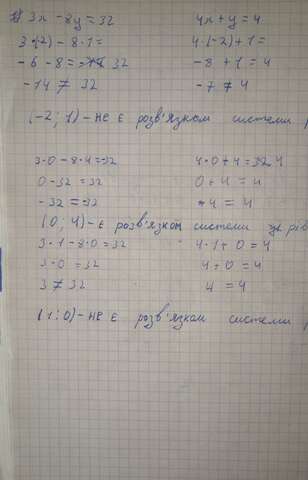 3x - 8y = 32 4x + y = 4
3·(-2) - 8·1 = 4·(-2) + 1 =
-6 - 8 = 32 -8 + 1 = 4
-14 ≠ 32 -7 ≠ 4
(-2; 1) - не є розв'язком системи
3·0 - 8·4 = 32 4·0 + 4 = 4
0 - 32 = 32 0 + 4 = 4
-32 = -32 4 = 4
(0; 4) - є розв'язком системи рів
3·1 - 8·0 = 32 4·1 + 0 = 4
3·0 = 32 4 + 0 = 4
3 ≠ 32 4 = 4
(1; 0) - не є розв'язком системи